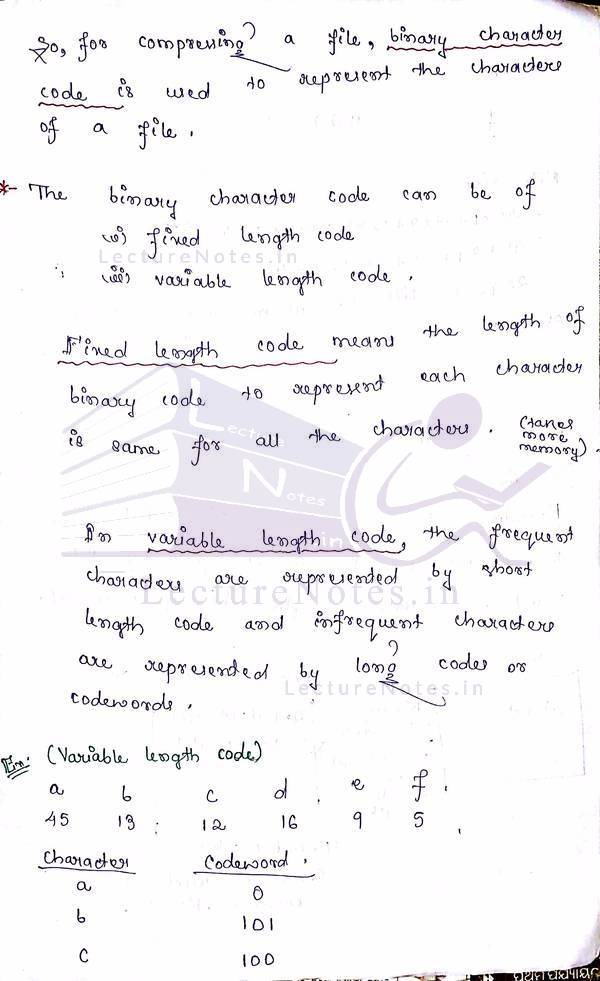 So, for compressing a file, binary character
code is used to represent the characters
of a file.
* The binary character code can be of
(i) fixed length code
LectureNotes.in
(ii) variable length code.
Fixed length code means the length of
binary code to represent each character
is same for all the characters. (takes more memory).
Lecture Notes.in
In variable length code, the frequent
characters are represented by short
LectureNotes.in
length code and infrequent characters
are represented by long codes or
LectureNotes.in
codewords.
Ex: (Variable length code)
a b c d e f
45 13 12 16 9 5
Character Codeword
a 0
b 101
c 100